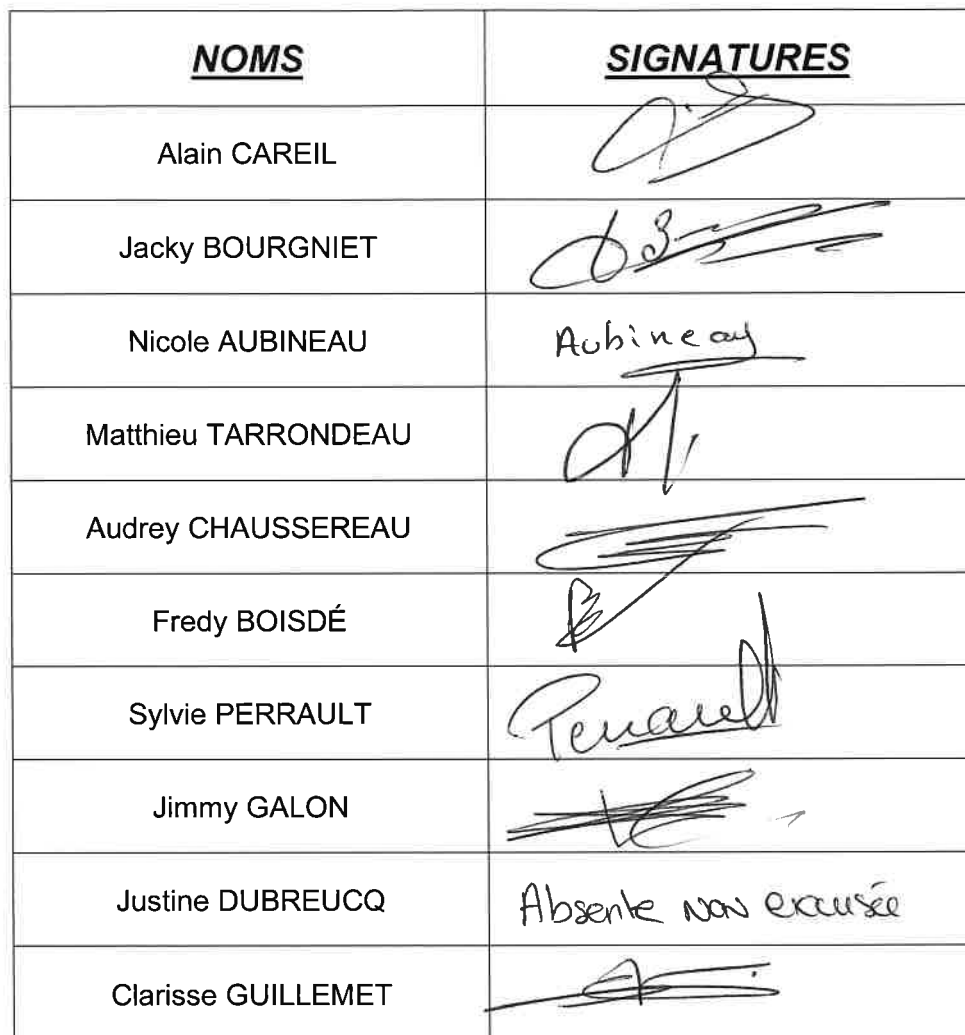 NOMS SIGNATURES
Alain CAREIL
Jacky BOURGNIET
Nicole AUBINEAU Aubineau
Matthieu TARRONDEAU
Audrey CHAUSSEREAU
Fredy BOISDÉ
Sylvie PERRAULT Perrault
Jimmy GALON
Justine DUBREUCQ Absente non excusée
Clarisse GUILLEMET